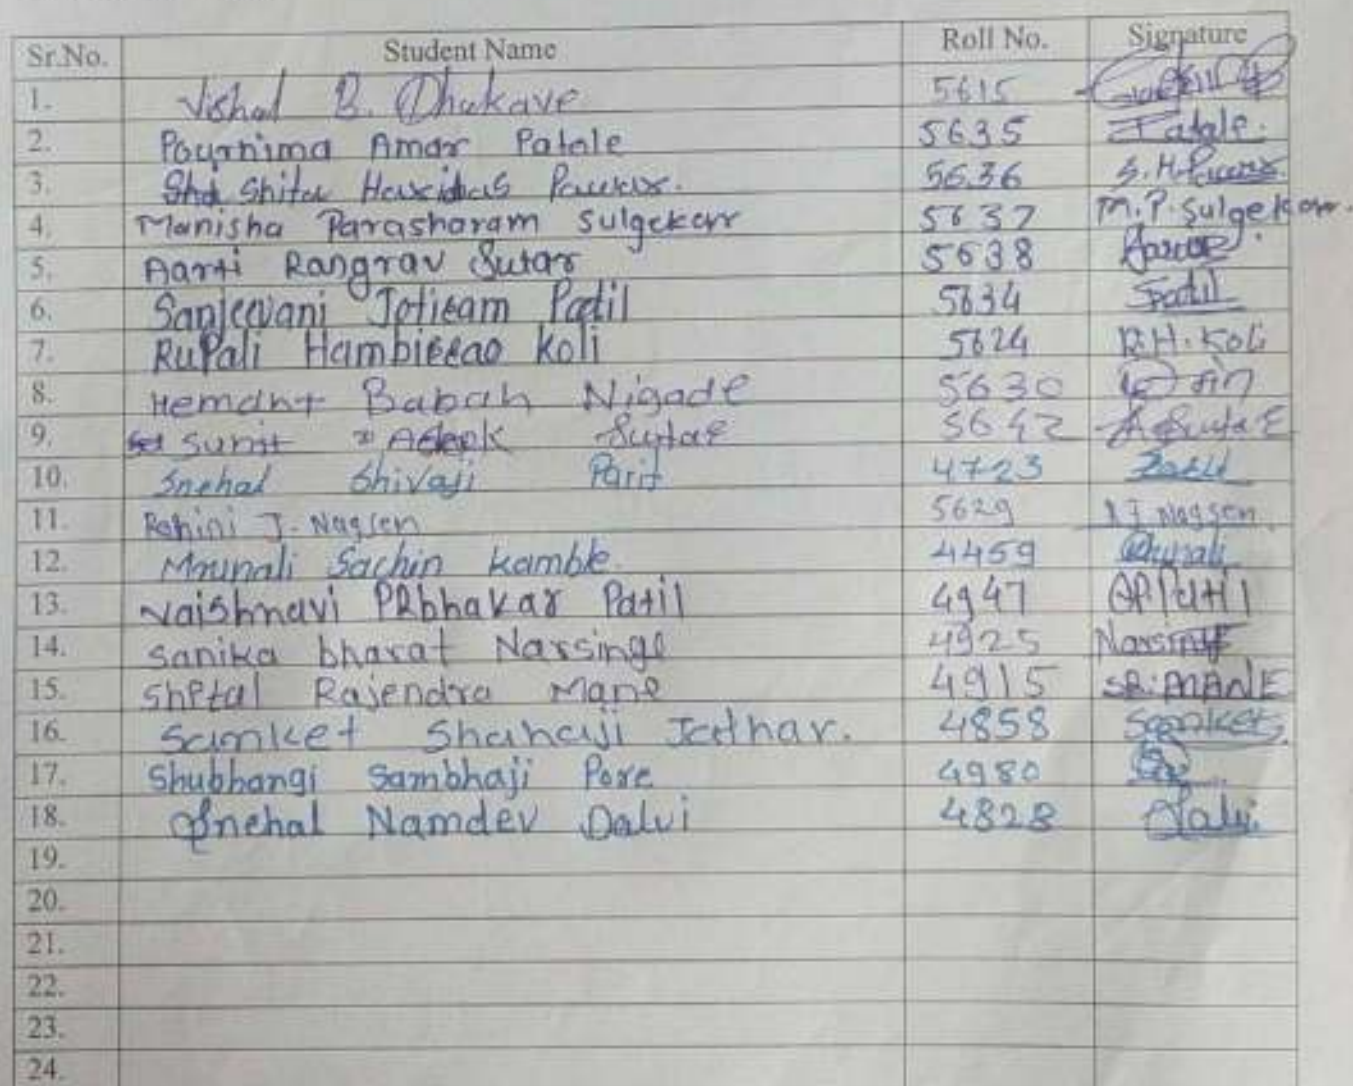 Sr.No. Student Name Roll No. Signature
1. Vishal B. Dhukave 5615
2. Pournima Amar Patale 5635 Patale.
3. Shital Haridas Pawar. 5636 S.H.Pawar
4. Manisha Parasharam Sulgekarr 5637 M.P.Sulgekarr.
5. Aarti Rangrav Sutar 5638
6. Sanjeevani Jotiram Patil 5634 SPatil
7. Rupali Hambirrao Koli 5624 R.H.Koli
8. Hemant Babah Nigade 5630
9. Sunit Sutar 5642 Sutar
10. Snehal Shivaji Parit 4723
11. Rohini J. Nagsen 5629 R J Nagsen
12. Mrunali Sachin kamble. 4459 Mrunali
13. Vaishnavi PRbhakar Patil 4947
14. Sanika bharat Narsinge 4925 Narsinge
15. Shetal Rajendra Mane 4915 SR.MANE
16. Sanket Shahaji Jadhav. 4858 Sanket
17. Shubhangi Sambhaji Pore 4980
18. Snehal Namdev Dalvi 4828 Dalvi.
19.
20.
21.
22.
23.
24.